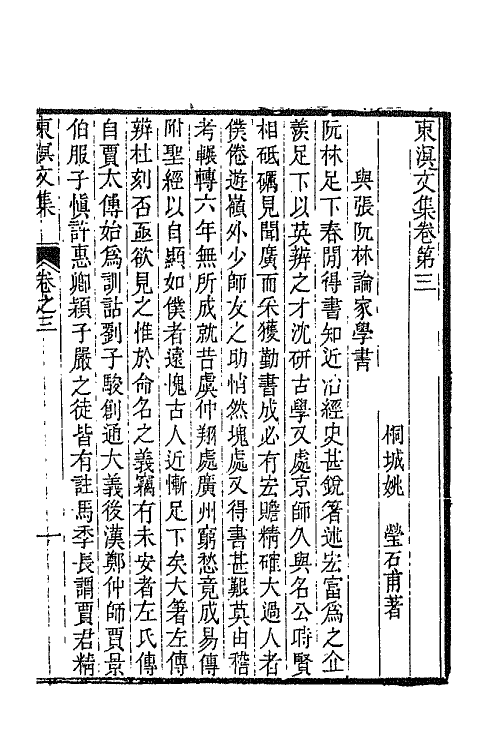 東溟文集卷第三
桐城姚　瑩石甫著
與張阮林論家學書
阮林足下春閒得書知近治經史甚銳箸述宏富爲之企
羨足下以英辨之才沈研古學又處京師久與名公時賢
相砥礪見聞廣而采獲勤書成必有宏贍精確大過人者
僕倦遊嶺外少師友之助悄然塊處又得書甚艱莫由稽
考輾轉六年無所成就昔虞仲翔處廣州窮愁竟成易傳
附聖經以自顯如僕者遠愧古人近慚足下矣大箸左傳
辨杜刻否亟欲見之惟於命名之義竊有未安者左氏傳
自賈太傅始爲訓詁劉子駿創通大義後漢鄭仲師賈景
伯服子愼許惠卿潁子嚴之徒皆有註馬季長謂賈君精
東溟文集
卷之三
一